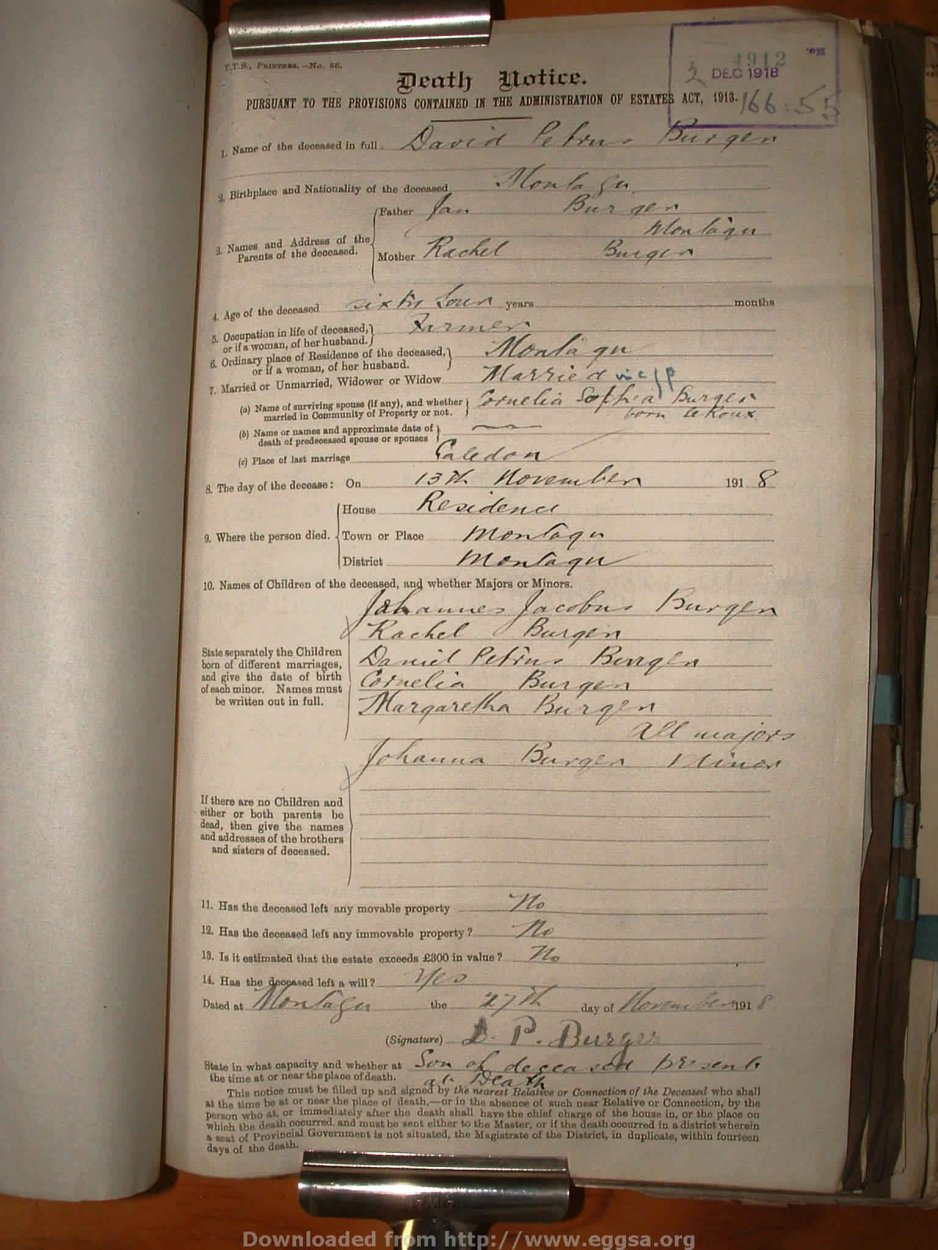 T.T.S., PRINTERS.—No. 86.
1912
2 DEC 1918
166.55
Death Notice.
PURSUANT TO THE PROVISIONS CONTAINED IN THE ADMINISTRATION OF ESTATES ACT, 1913.
1. Name of the deceased in full. David Petrus Burger
2. Birthplace and Nationality of the deceased Montagu
3. Names and Address of the Parents of the deceased.
Father Jan Burger
Montagu
Mother Rachel Burger
4. Age of the deceased sixty four years months
5. Occupation in life of deceased, or if a woman, of her husband. Farmer
6. Ordinary place of Residence of the deceased, or if a woman, of her husband. Montagu
7. Married or Unmarried, Widower or Widow Married in c/p
(a) Name of surviving spouse (if any), and whether married in Community of Property or not. Cornelia Sophia Burger
born le Roux
(b) Name or names and approximate date of death of predeceased spouse or spouses
(c) Place of last marriage Caledon
8. The day of the decease: On 13th November 1918
9. Where the person died.
House Residence
Town or Place Montagu
District Montagu
10. Names of Children of the deceased, and whether Majors or Minors.
Johannes Jacobus Burger
Rachel Burger
State separately the Children born of different marriages, and give the date of birth of each minor. Names must be written out in full.
Daniel Petrus Burger
Cornelia Burger
Margaretha Burger
All majors
Johanna Burger Minor
If there are no Children and either or both parents be dead, then give the names and addresses of the brothers and sisters of deceased.
11. Has the deceased left any movable property No
12. Has the deceased left any immovable property? No
13. Is it estimated that the estate exceeds £300 in value? No
14. Has the deceased left a will? Yes
Dated at Montagu the 27th day of November 1918
(Signature) D. P. Burger
State in what capacity and whether at the time at or near the place of death. Son of deceased present
at Death
This notice must be filled up and signed by the nearest Relative or Connection of the Deceased who shall
at the time be at or near the place of death,—or in the absence of such near Relative or Connection, by the
person who at, or immediately after the death shall have the chief charge of the house in, or the place on
which the death occurred, and must be sent either to the Master, or if the death occurred in a district wherein
a seat of Provincial Government is not situated, the Magistrate of the District, in duplicate, within fourteen
days of the death.
Downloaded from http://www.eggsa.org